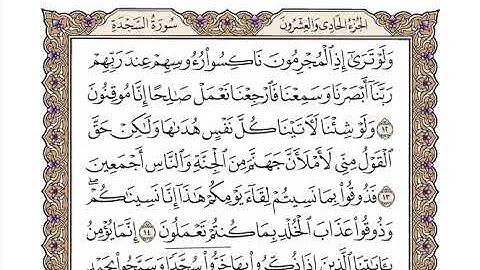 الجُزْءُ الحَادِي وَالعِشْرُونَ سُورَةُ السَّجْدَةِ
وَلَوْ تَرَىٰٓ إِذِ ٱلْمُجْرِمُونَ نَاكِسُوا۟ رُءُوسِهِمْ عِندَ رَبِّهِمْ
رَبَّنَآ أَبْصَرْنَا وَسَمِعْنَا فَٱرْجِعْنَا نَعْمَلْ صَٰلِحًا إِنَّا مُوقِنُونَ
١٢ وَلَوْ شِئْنَا لَءَاتَيْنَا كُلَّ نَفْسٍ هُدَىٰهَا وَلَٰكِنْ حَقَّ
ٱلْقَوْلُ مِنِّى لَأَمْلَأَنَّ جَهَنَّمَ مِنَ ٱلْجِنَّةِ وَٱلنَّاسِ أَجْمَعِينَ
١٣ فَذُوقُوا۟ بِمَا نَسِيتُمْ لِقَآءَ يَوْمِكُمْ هَٰذَآ إِنَّا نَسِينَٰكُمْ ۖ
وَذُوقُوا۟ عَذَابَ ٱلْخُلْدِ بِمَا كُنتُمْ تَعْمَلُونَ ١٤ إِنَّمَا يُؤْمِنُ
بِـَٔايَٰتِنَا ٱلَّذِينَ إِذَا ذُكِّرُوا۟ بِهَا خَرُّوا۟ سُجَّدًا وَسَبَّحُوا۟ بِحَمْدِ